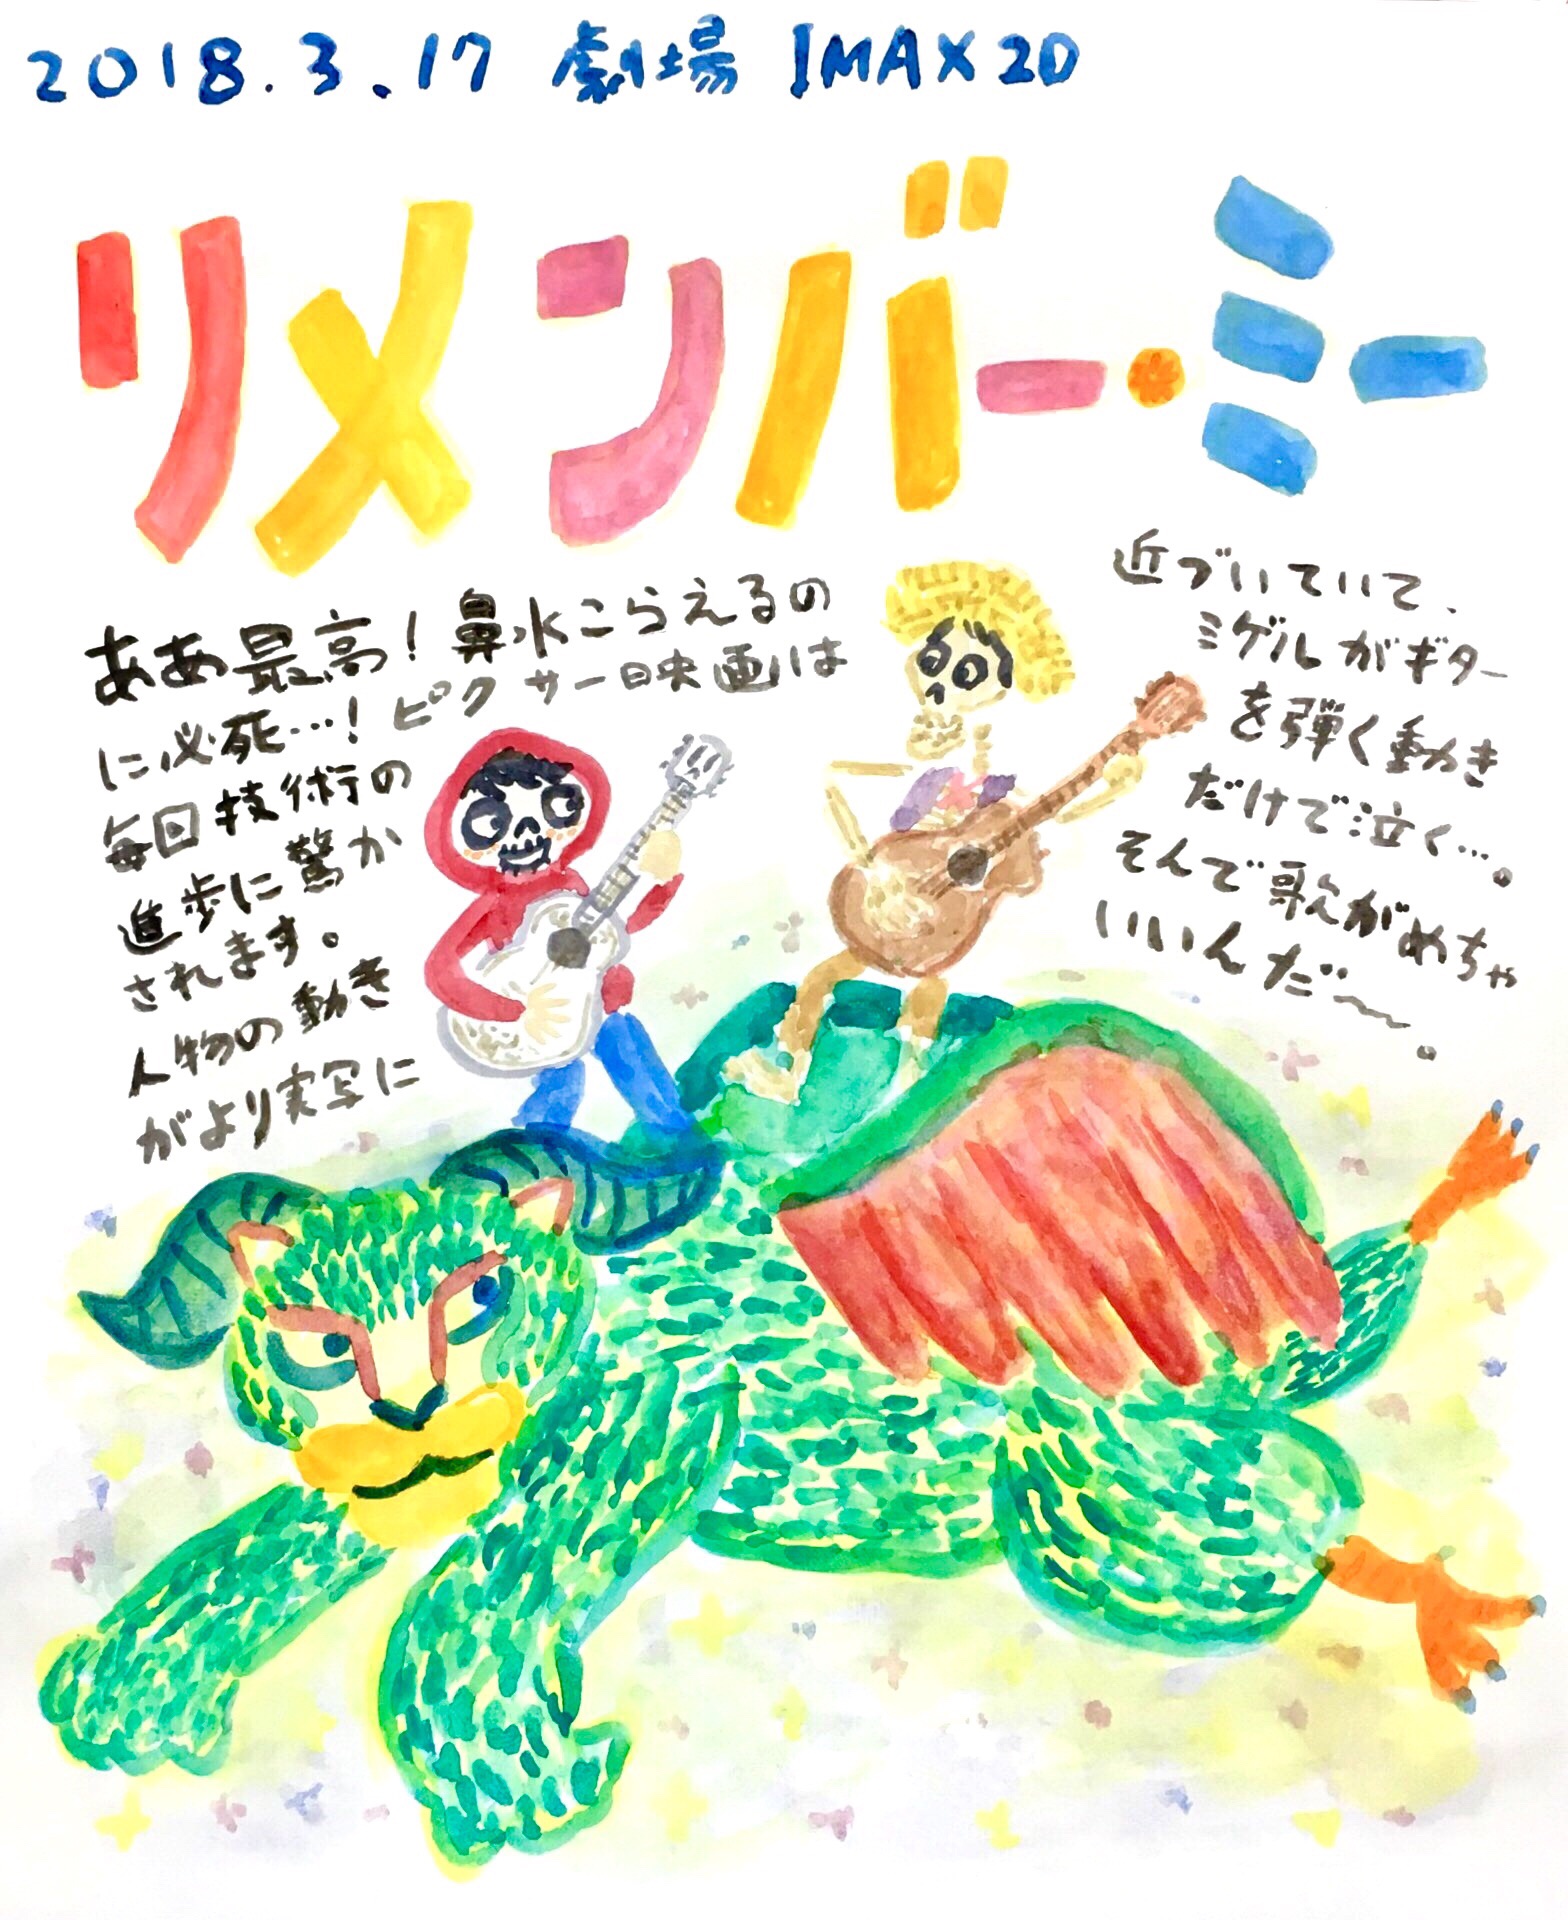 2018.3.17 劇場 IMAX2D
リメンバー・ミー
ああ最高！鼻水こらえるの
に必死…！ピクサー映画は
毎回技術の
進歩に驚か
されます。
人物の動き
がより実写に
近づいていて、
ミゲルがギター
を弾く動き
だけで泣く…。
そんで歌がめちゃ
いいんだ〜。